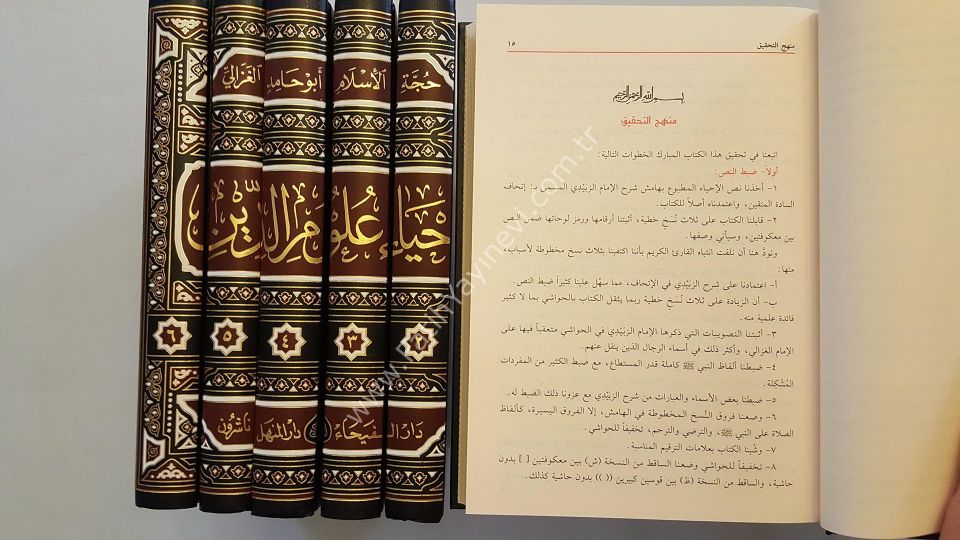 حُجَّة الإسلام أبو حامد الغزالي
حياء علوم الدين
٢ ٣ ٤ ٥ ٦
دار الفيحاء دار المنهل ناشرون
منهج التحقيق ١٥
بسم الله الرحمن الرحيم
منهج التحقيق:
اتبعنا في تحقيق هذا الكتاب المبارك الخطوات التالية:
أولاً- ضبط النص:
١- أخذنا نص الإحياء المطبوع بهامش شرح الإمام الزَّبِيْدي المسمى بـ: إتحاف
السادة المتقين، واعتمدناه أصلاً للكتاب.
٢- قابلنا الكتاب على ثلاث نُسَخٍ خطية، أثبتنا أرقامها ورمز لوحاتها ضمن النص
بين معكوفتين، وسيأتي وصفها.
ونودُّ هنا أن نلفت انتباه القارئ الكريم بأننا اكتفينا بثلاث نسخ مخطوطة لأسباب،
منها:
أ- اعتمادنا على شرح الزَّبِيْدي في الإتحاف، مما سهَّل علينا كثيراً ضبط النص.
ب- أن الزيادة على ثلاث نُسَخٍ خطية ربما يثقل الكتاب بالحواشي بما لا كثير
فائدة علمية منه.
٣- أثبتنا التصويبات التي ذكرها الإمام الزَّبِيْدي في الحواشي متعقباً فيها على
الإمام الغزالي، وأكثر ذلك في أسماء الرجال الذين ينقل عنهم.
٤- ضبطنا ألفاظ النبي ﷺ كاملة قدر المستطاع، مع ضبط الكثير من المفردات
المُشْكلة.
٥- ضبطنا بعض الأسماء والعبارات من شرح الزَّبِيْدي مع عزونا ذلك الضبط له.
٦- وضعنا فروق النُّسخ المخطوطة في الهامش، إلا الفروق اليسيرة، كألفاظ
الصلاة على النبي ﷺ، والترضي والترحم، تخفيفاً للحواشي.
٧- وشَّينا الكتاب بعلامات الترقيم المناسبة.
٨- تخفيفاً للحواشي وضعنا الساقط من النسخة (ش) بين معكوفتين [ ] بدون
حاشية، والساقط من النسخة (ظ) بين قوسين كبيرين (( )) بدون حاشية كذلك.